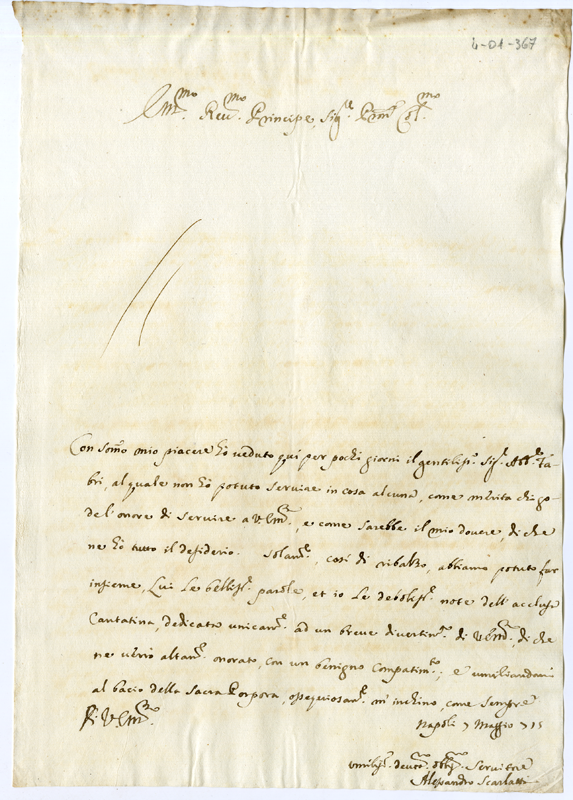 4-01-367
Em.mo Rev.mo Principe, Sig.re Pron Col.mo
Con som̃o mio piacere hò veduto qui per pochi giorni il gentiliss.o Sig.r Abb.e Fa-
bri, al quale non hò potuto servire in cosa alcuna, come merita chi go-
de l'onore di servire a V. Em.za, e come sarebbe il mio dovere, di che
ne hò tutto il desiderio. Solam.te, così di ribalzo, abbiamo potuto far
insieme, Lui le belliss.e parole, et io le deboliss.e note dell'acclusa
Cantatina, dedicata unicam.te ad un breve divertim.to di V. Em.za, di che
ne verrò altam.te onorato, con un benigno compatim.to; e umiliandomi
al bacio della Sacra Porpora, ossequiosam.te m'inchino, come sempre
Di V. Em.za
Napoli 7 Maggio 715
Umiliss.o devot.mo obblig.mo Servitore
Alessandro Scarlatti